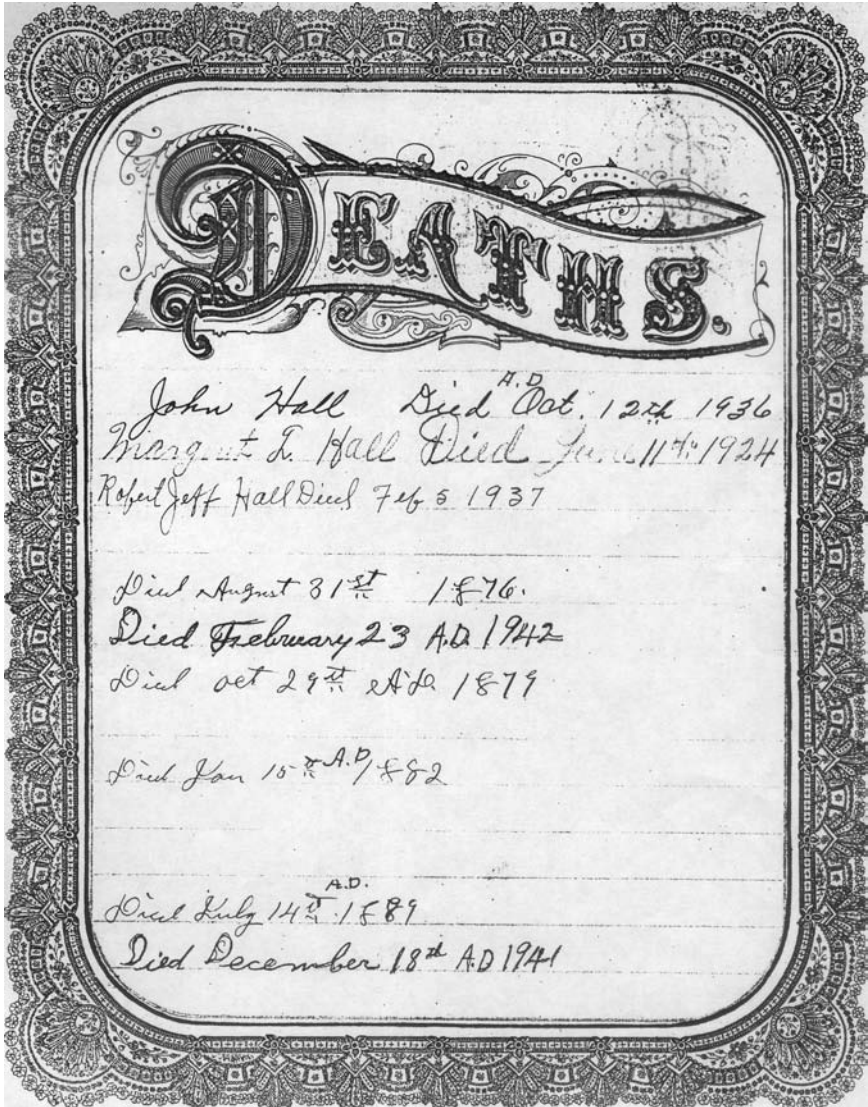 DEATHS.
John Hall Died A.D. Oct. 12th 1936
Margaret I. Hall Died June 11th 1924
Robert Jeff Hall Died Feb 5 1937
Died August 31st 1876.
Died February 23 A.D. 1942
Died oct 29th A.D. 1879
Died Jan 15th A.D. 1882
Died July 14th A.D. 1889
Died December 18th A.D 1941